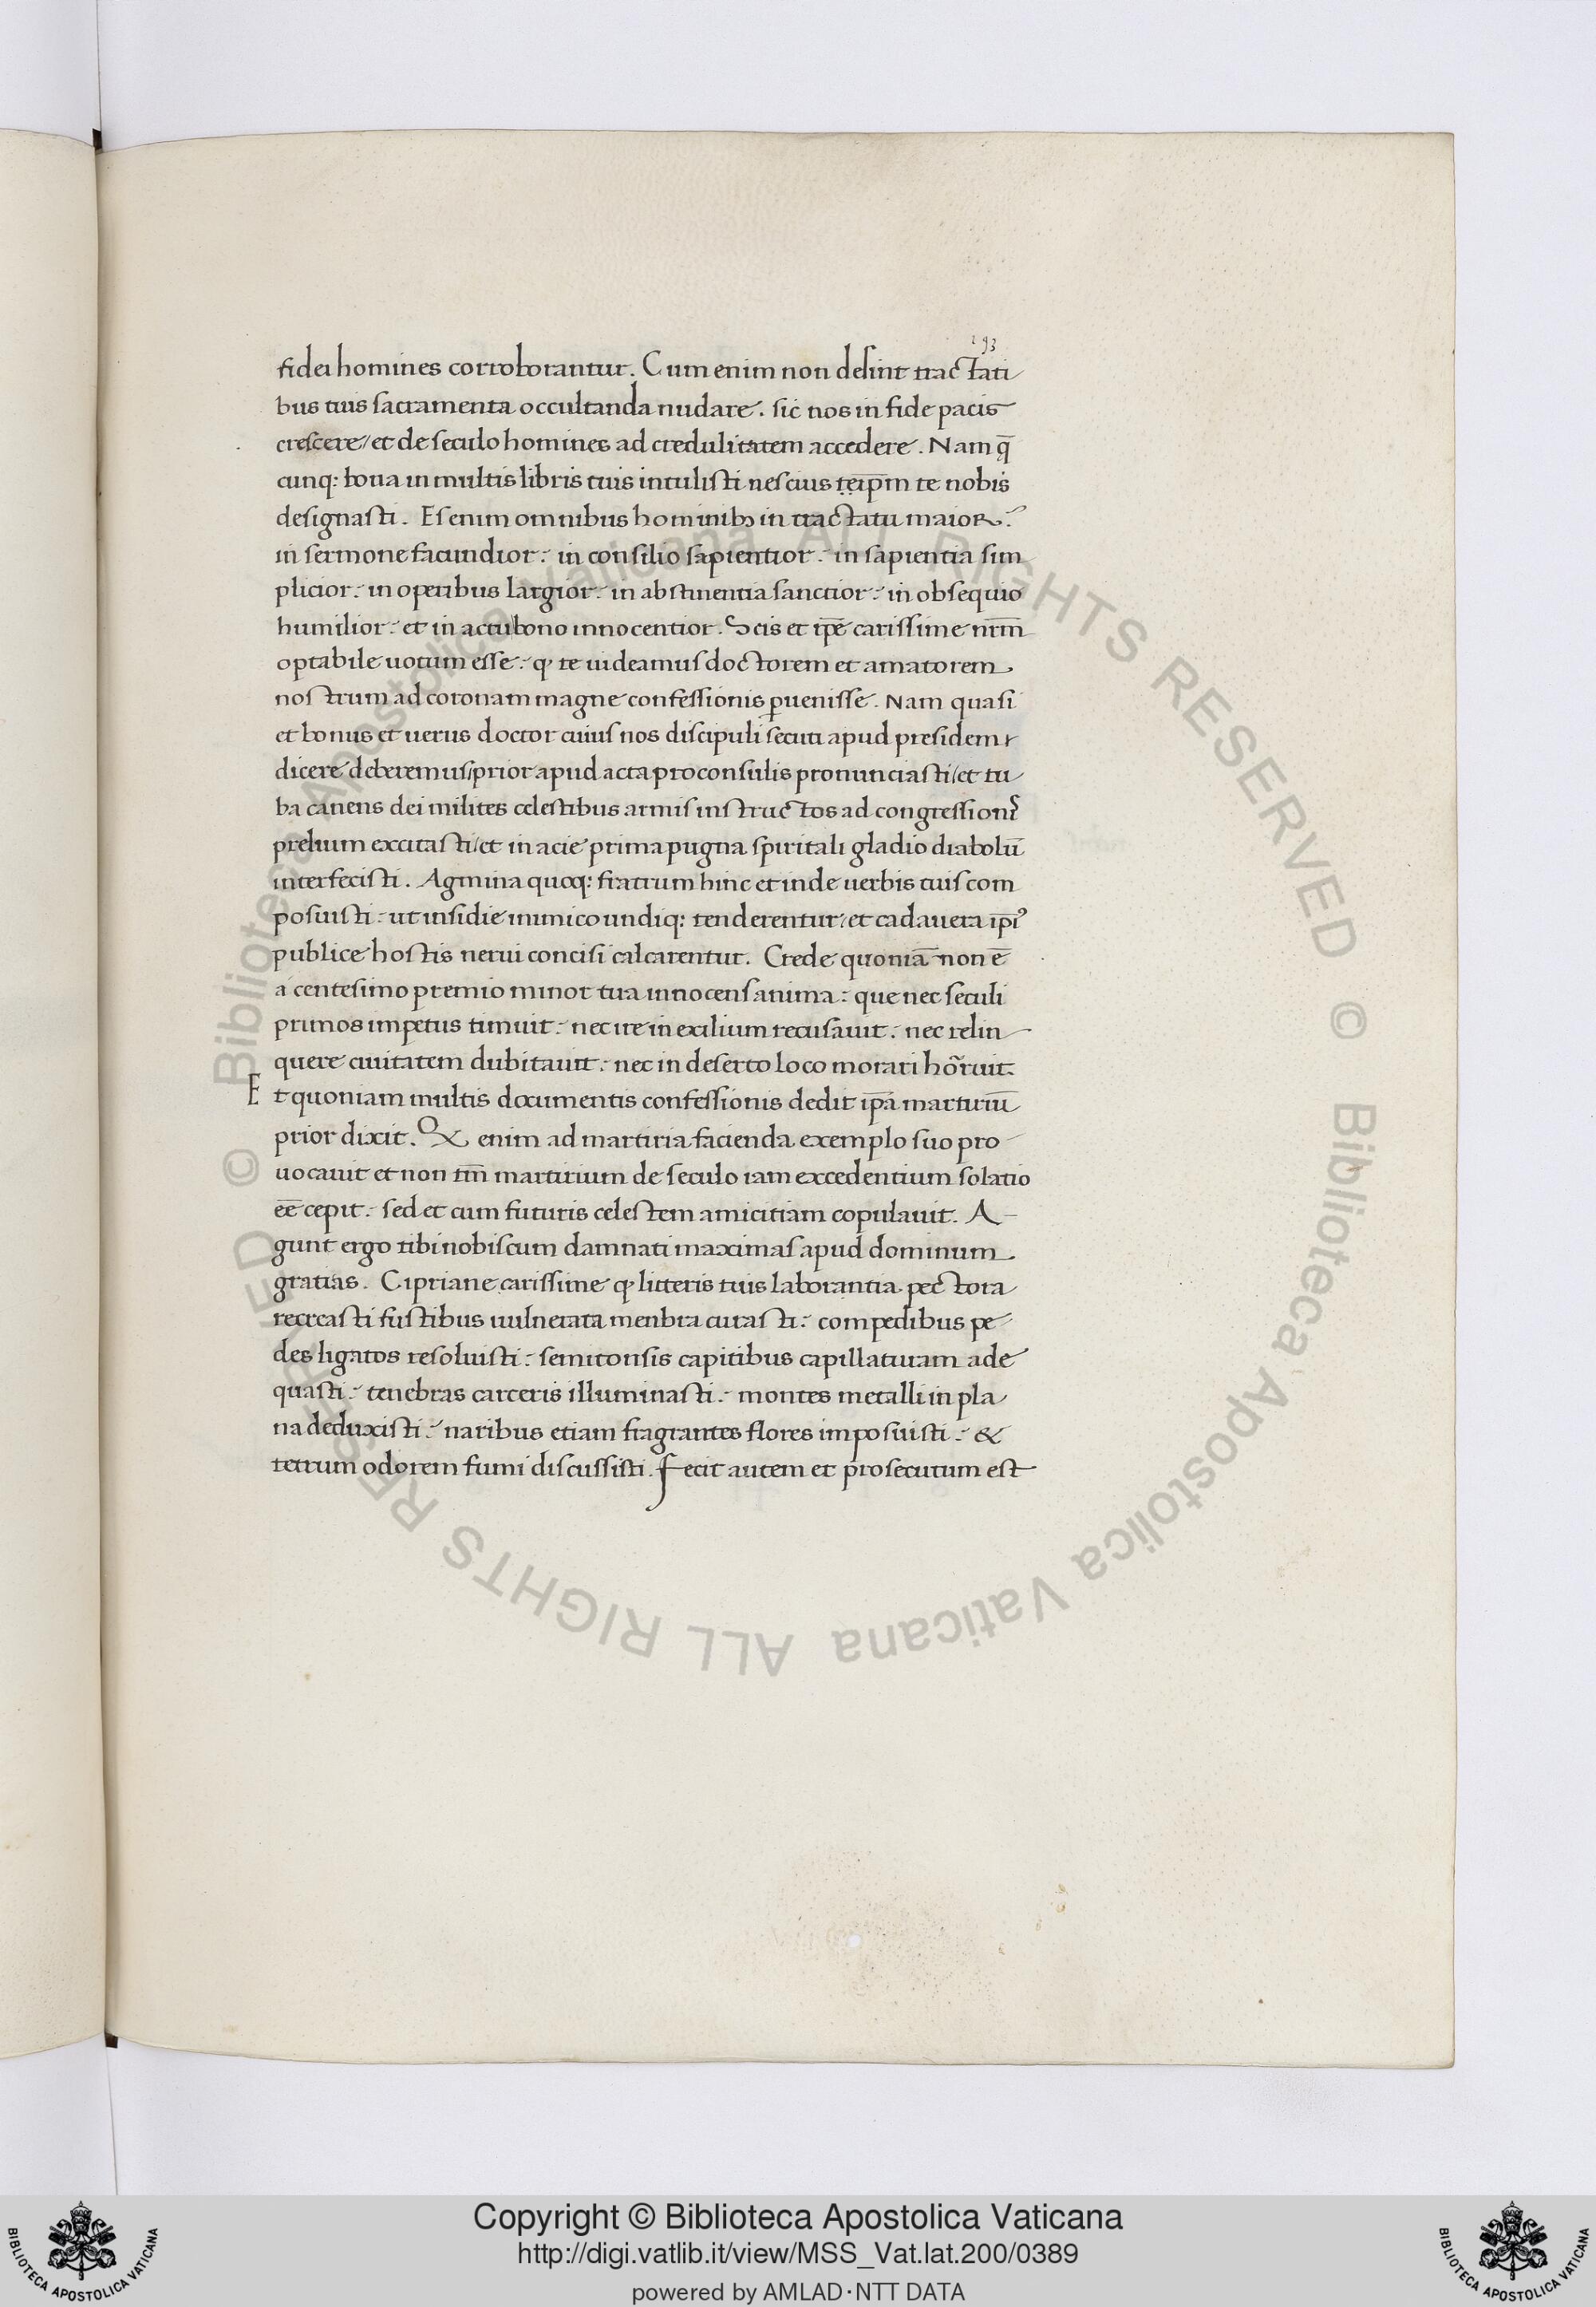 193
fidei homines corroborantur. Cum enim non desint tractati
bus tuis sacramenta occultanda nudare. sic nos in fide pacis
crescere/et de seculo homines ad credulitatem accedere. Nam q̄
cunq: bona in multis libris tuis intulisti nescius teip̄m te nobis
designasti. Es enim omnibus hominib; in tractatu maior:
in sermone facundior: in consilio sapientior: in sapientia sim
plicior: in operibus largior: in abstinentia sanctior: in obsequio
humilior: et in actu bono innocentior. Scis et ip̄e carissime nr̄m
optabile uotum esse: ꝙ te uideamus doctorem et amatorem
nostrum ad coronam magne confessionis ꝑuenisse. Nam quasi
et bonus et uerus doctor cuius nos discipuli secuti apud presidem
dicere deberemus/prior apud acta proconsulis pronunciasti/et tu
ba canens dei milites celestibus armis instructos ad congressionis
prelium excitasti/et in acie prima pugna spiritali gladio diabolū
interfecisti. Agmina quoq: fratrum hinc et inde uerbis tuis com
posuisti: ut insidie inimico undiq: tenderentur/et cadauera ip̄ius
publice hostis nerui concisi calcarentur. Crede quoniā non ē
a centesimo premio minor tua innocens anima: que nec seculi
primos impetus timuit: nec ire in exilium recusauit: nec relin
quere ciuitatem dubitauit: nec in deserto loco morari horruit:
Et quoniam multis documentis confessionis dedit ip̄a martiriū
prior dixit. Ox enim ad martiria facienda exemplo suo pro
uocauit et non tm̄ martirium de seculo iam excedentium solatio
eē cepit: sed et cum futuris celestem amicitiam copulauit. A-
gunt ergo tibi nobiscum damnati maximas apud dominum
gratias. Cipriane carissime ꝙ litteris tuis laborantia pectora
recreasti fustibus uulnerata menbra curasti: compedibus pe
des ligatos resoluisti: semitonsis capitibus capillaturam ade
quasti: tenebras carceris illuminasti: montes metalli in pla
na deduxisti: naribus etiam fragrantes flores imposuisti: &
tetrum odorem fumi discussisti. Fecit autem et prosecutum est
© Biblioteca Apostolica Vaticana ALL RIGHTS RESERVED © Biblioteca Apostolica Vaticana ALL RIGHTS RESERVED
Copyright © Biblioteca Apostolica Vaticana
http://digi.vatlib.it/view/MSS_Vat.lat.200/0389
powered by AMLAD·NTT DATA
BIBLIOTECA APOSTOLICA VATICANA
BIBLIOTECA APOSTOLICA VATICANA